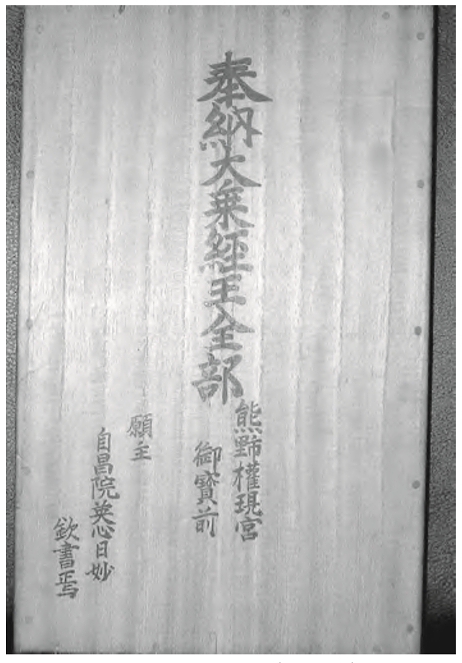 奉納大乗経王全部
熊野權現宮
御寳前
願主
自昌院英心日妙
欽書焉